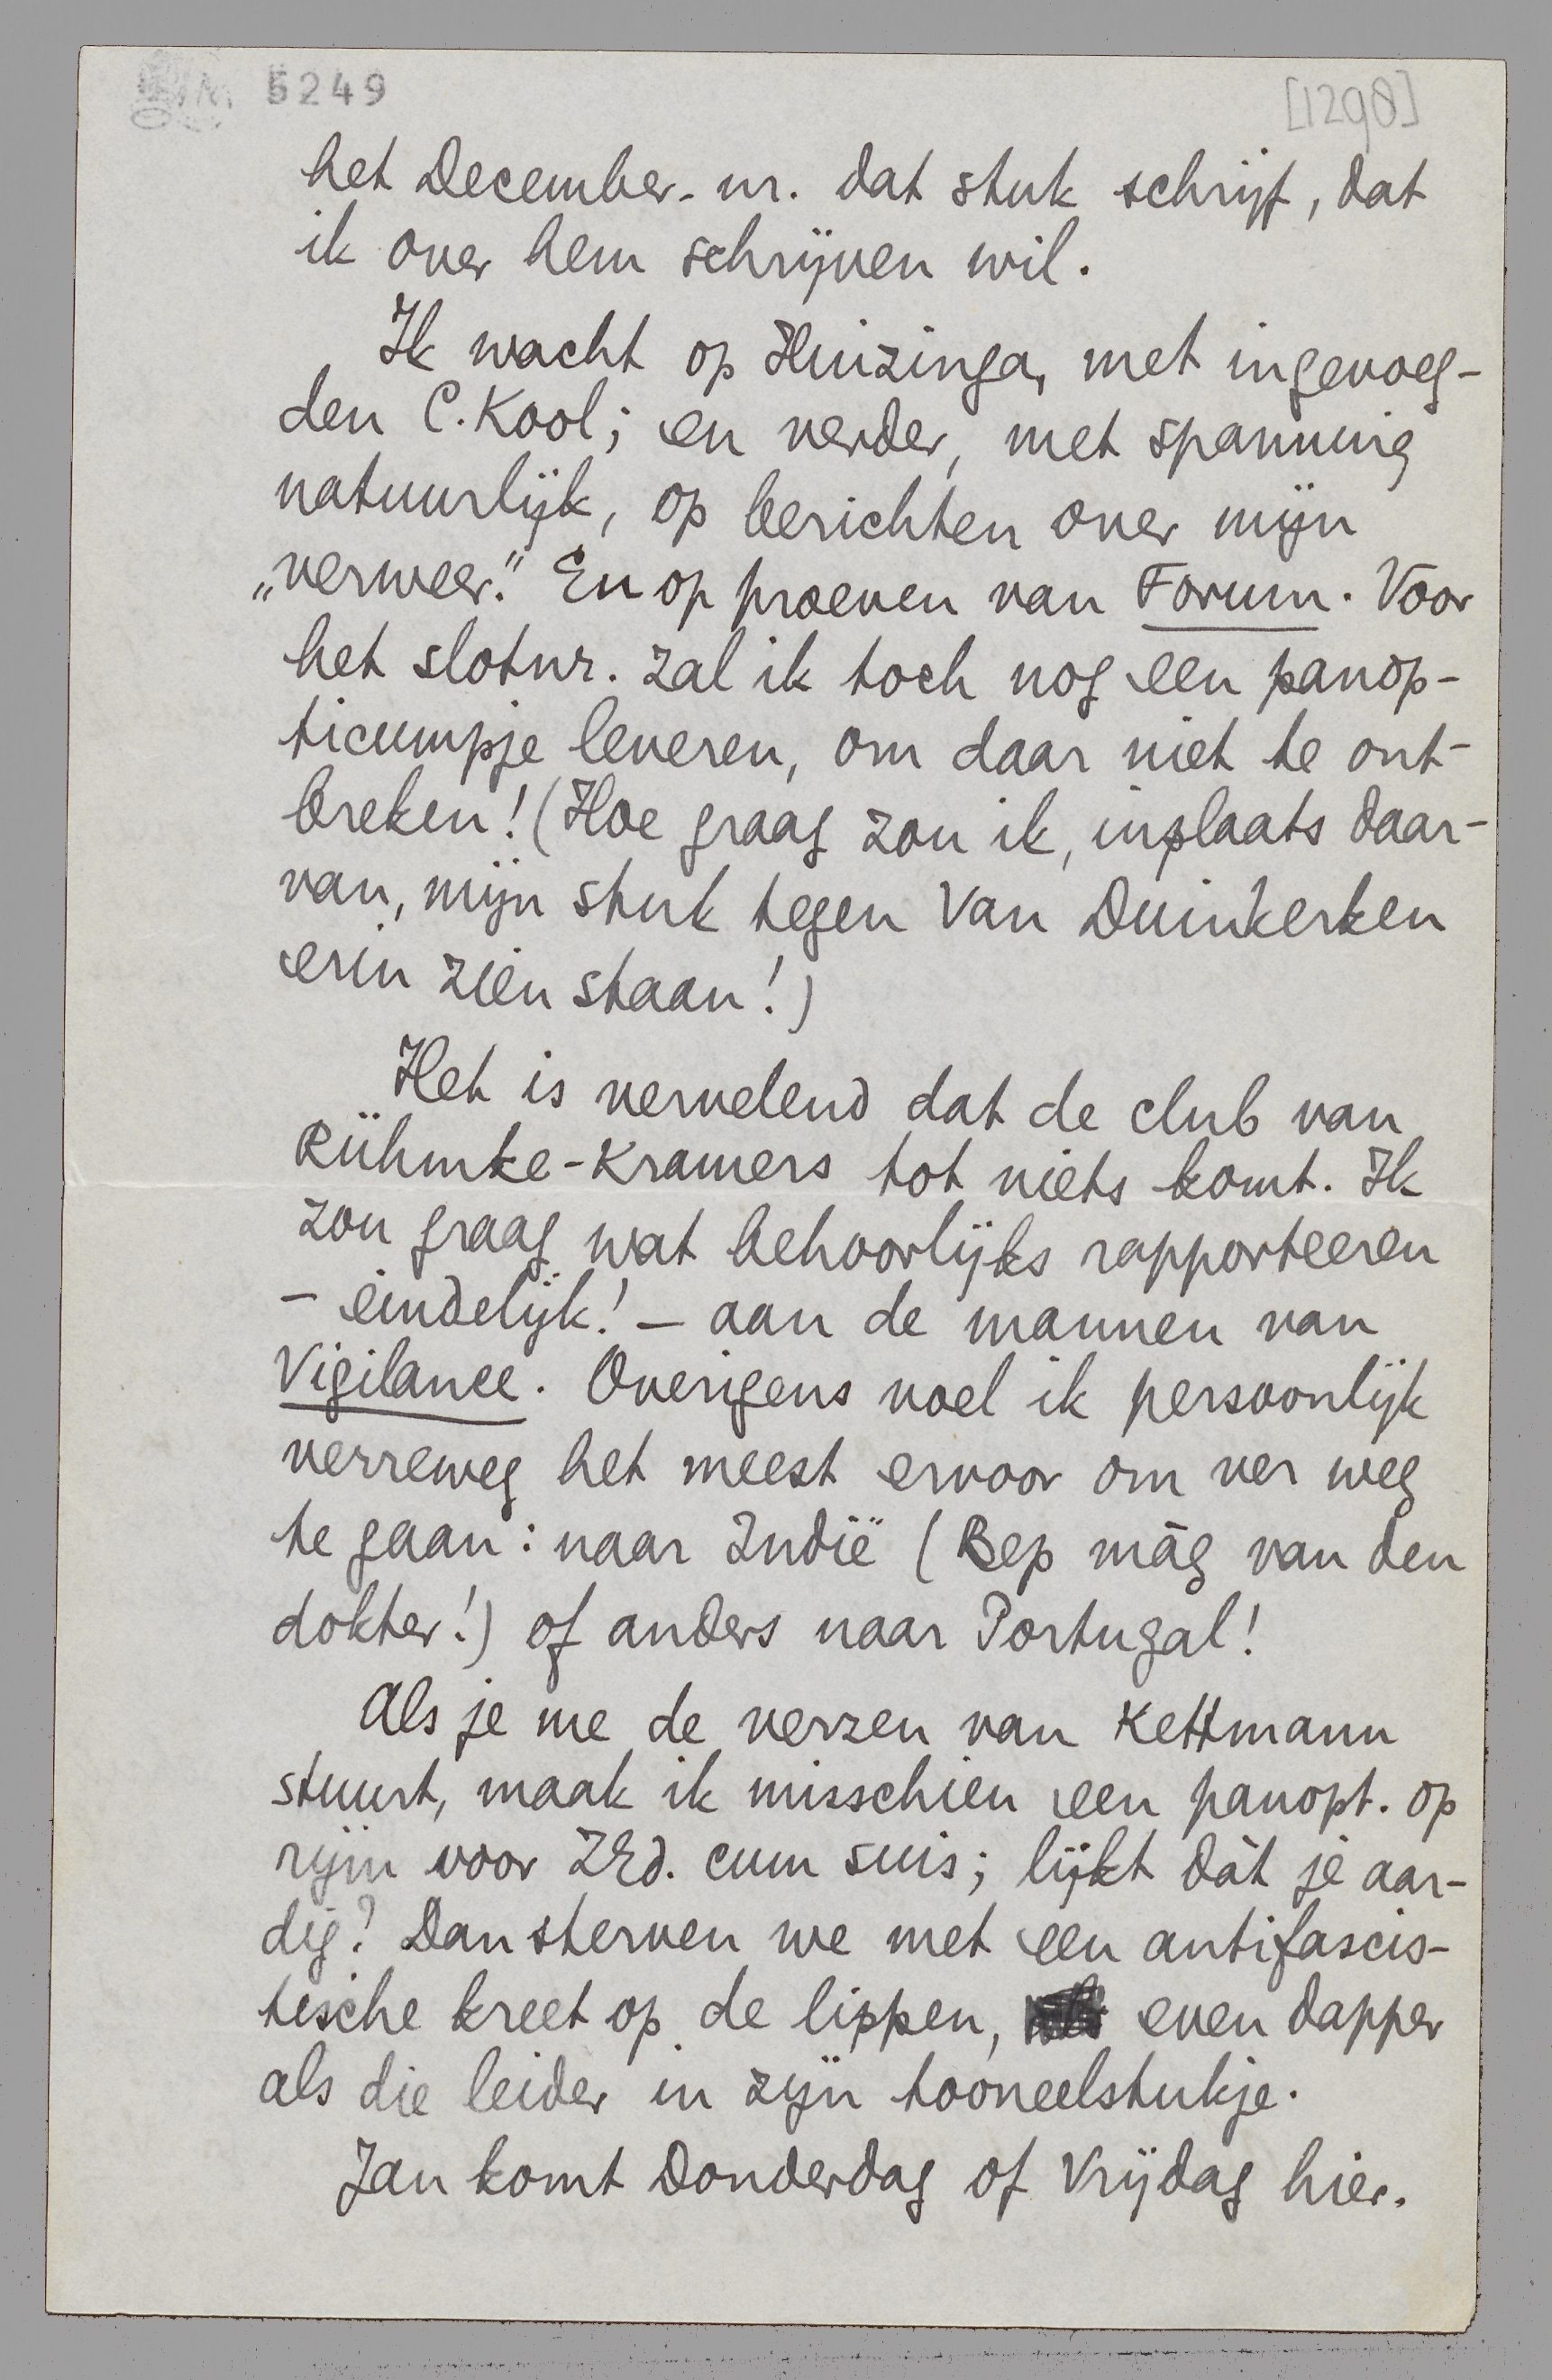 5249
[1298]
het December-nr. dat stuk schrijf, dat
ik over hem schrijven wil.
Ik wacht op Huizinga, met ingevoeg-
den C. Kool; en verder, met spanning
natuurlijk, op berichten over mijn
„verweer." En op proeven van Forum. Voor
het slotnr. zal ik toch nog een panop-
ticumpje leveren, om daar niet te ont-
breken! (Hoe graag zou ik, inplaats daar-
van, mijn stuk tegen Van Duinkerken
erin zien staan!)
Het is vervelend dat de club van
Rühmke-Kramers tot niets komt. Ik
zou graag wat behoorlijks rapporteeren
- eindelijk! - aan de mannen van
Vigilance. Overigens voel ik persoonlijk
verreweg het meest ervoor om ver weg
te gaan: naar Indië (Bep mág van den
dokter!) of anders naar Portugal!
Als je me de verzen van Kettmann
stuurt, maak ik misschien een panopt. op
rijm voor ZEd. cum suis; lijkt dàt je aar-
dig? Dan sterven we met een antifascis-
tische kreet op de lippen, even dapper
als die leider in zijn tooneelstukje.
Jan komt Donderdag of Vrijdag hier.